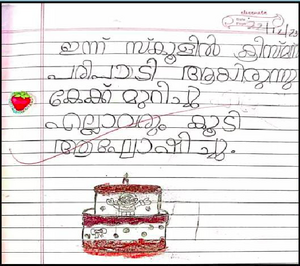 ഇന്ന് സ്കൂളിൽ ക്രിസ്മസ്
പരിപാടി ആയിരുന്നു
കേക്ക് മുറിച്ചു
എല്ലാവരും കൂടി
ആഘോഷിച്ചു.